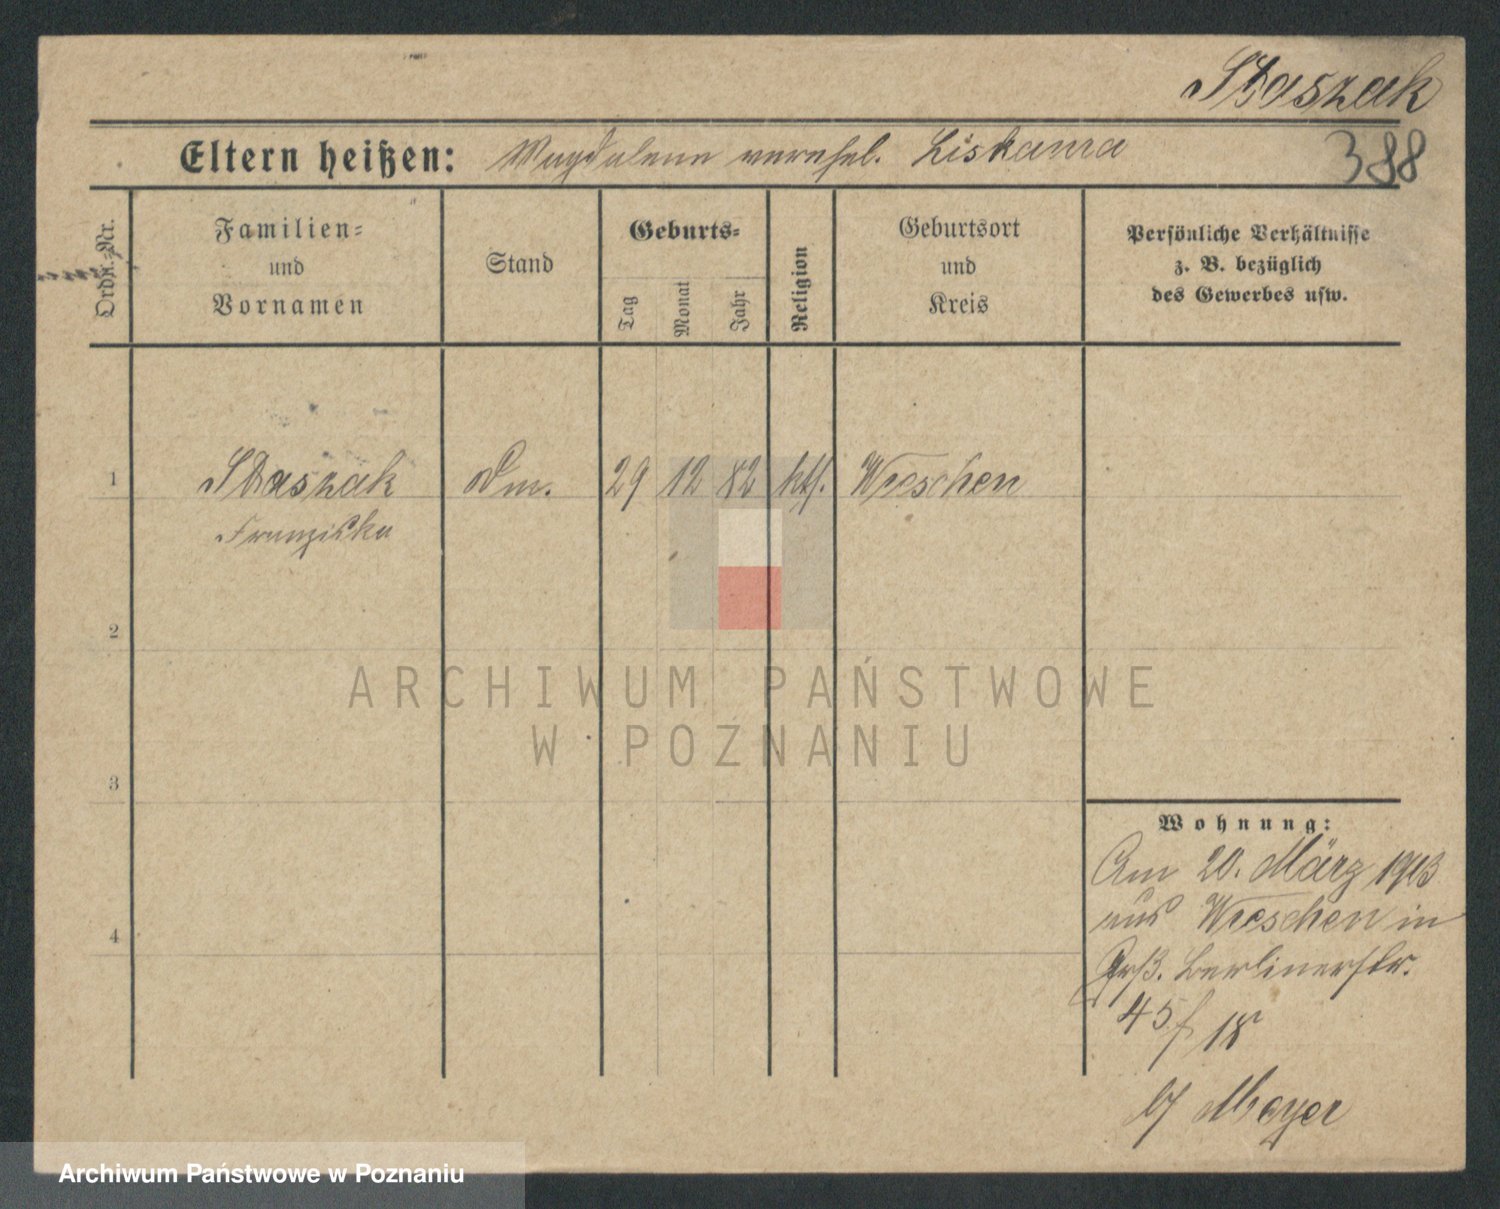 Staszak
388
Eltern heißen: Magdalena verehel. Liskama
Ordn.-Nr.
Familien-
und
Vornamen
Stand
Geburts-
Tag
Monat
Jahr
Religion
Geburtsort
und
Kreis
Persönliche Verhältnisse
z. B. bezüglich
des Gewerbes usw.
1 Staszak Dm. 29 12 82 kth. Wreschen
Franziska
2
3
4
Wohnung:
Am 20. März 1913
aus Wreschen in
Berlinerstr.
45/18
b/ Meyer
ARCHIWUM PAŃSTWOWE
W POZNANIU
Archiwum Państwowe w Poznaniu